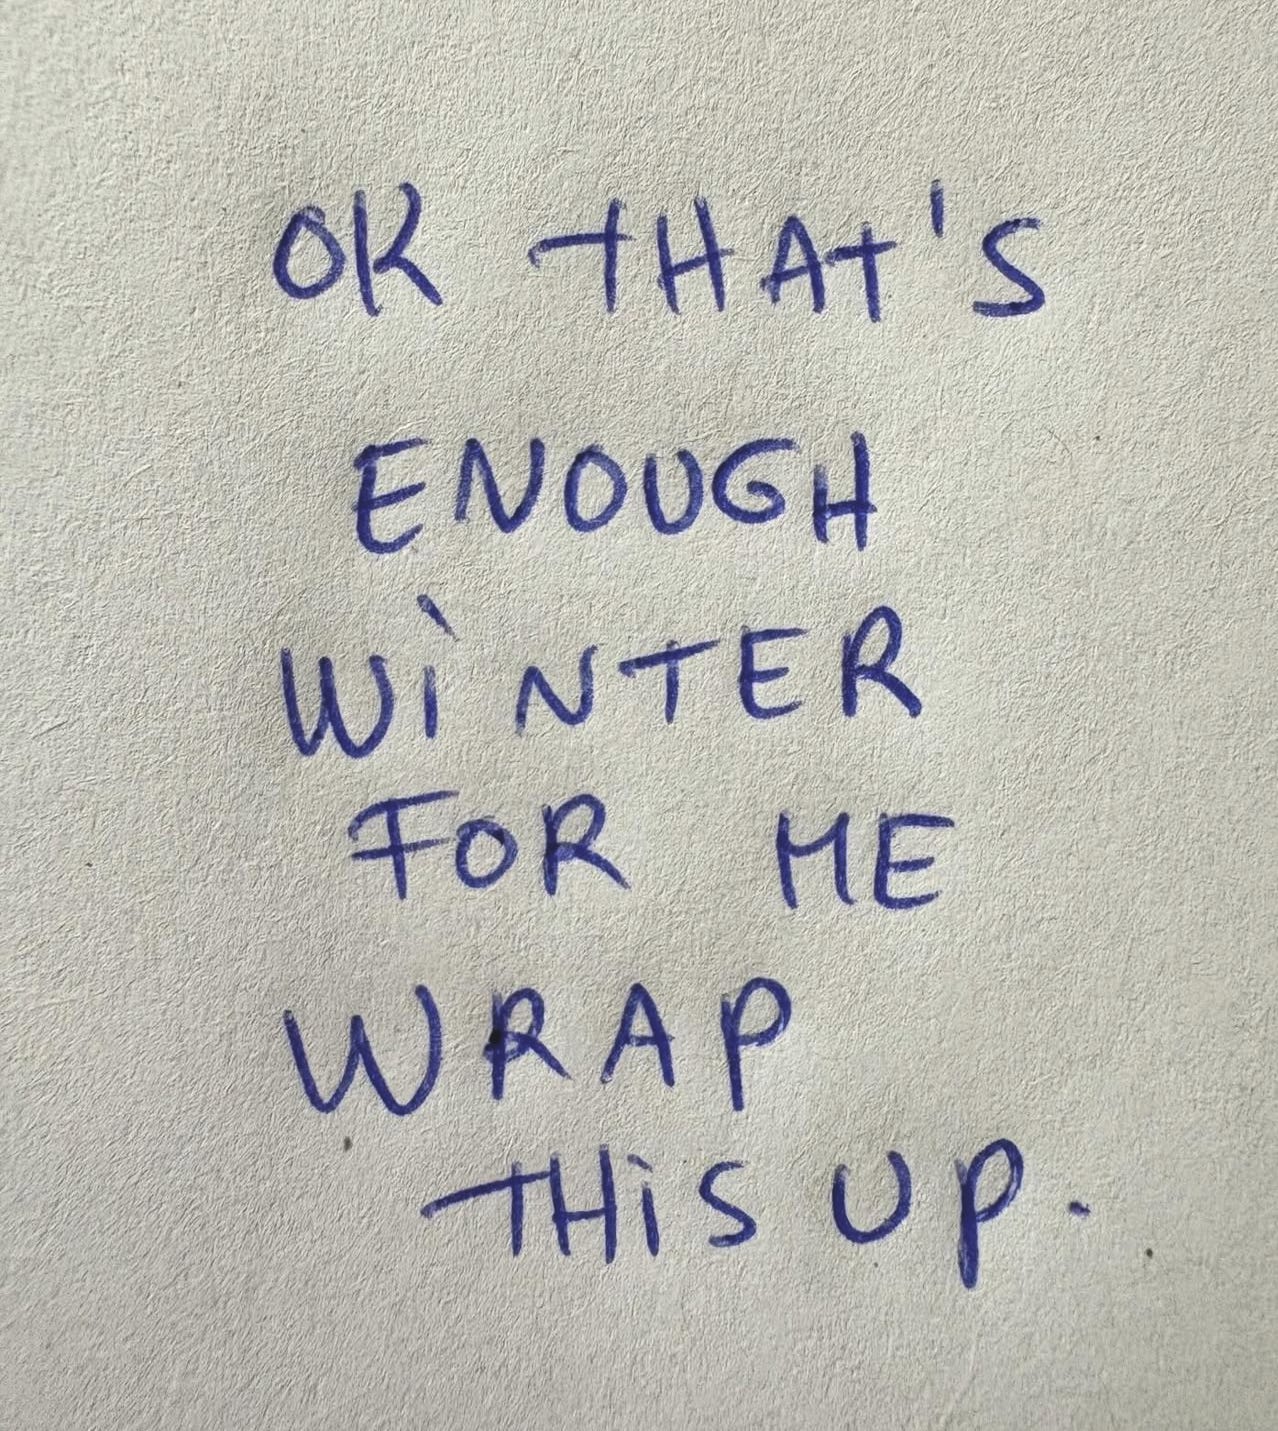 OK THAT'S
ENOUGH
WiNTER
FOR ME
WRAP
THiS UP.